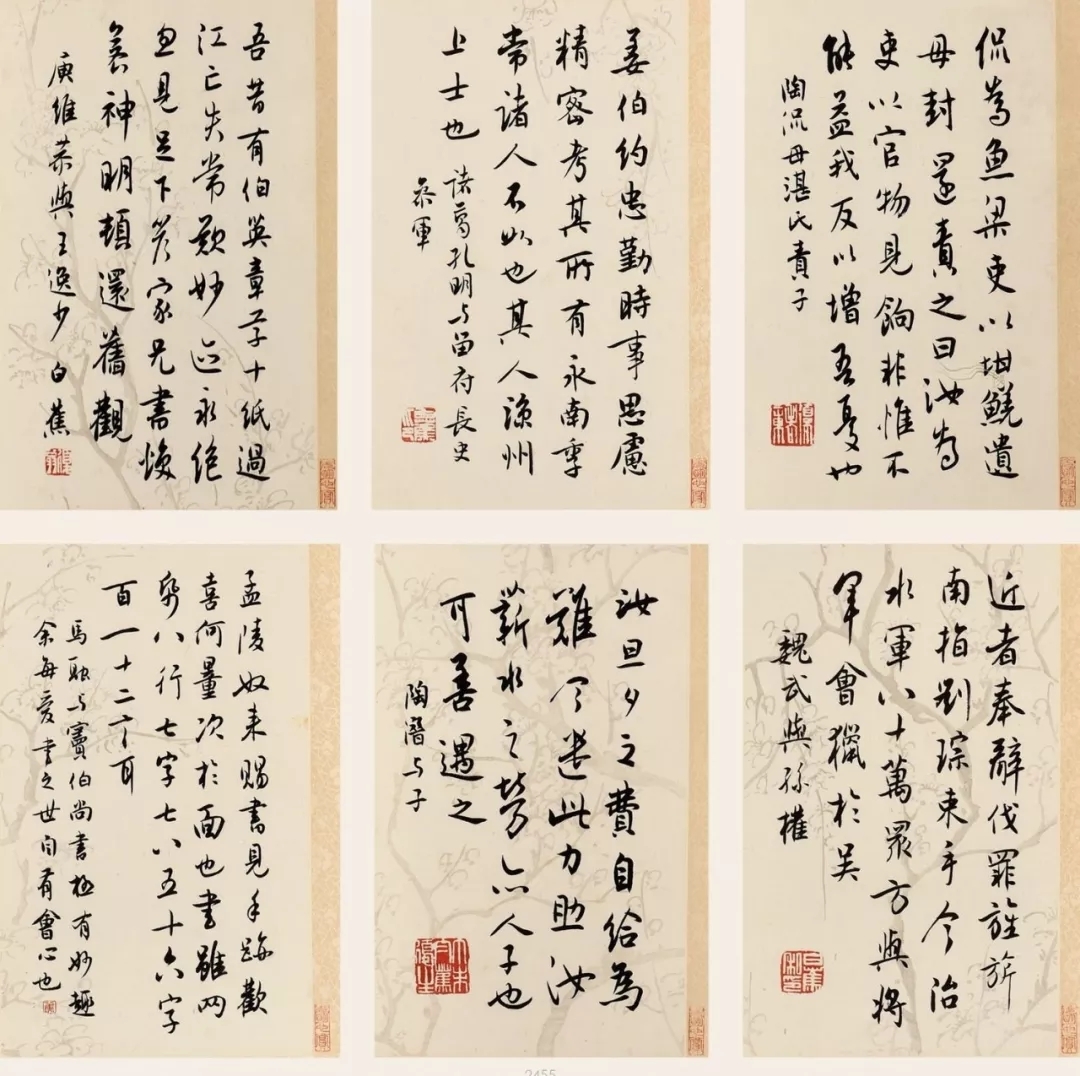 侃為魚梁吏以坩鮺遺
母封還責之曰汝為
吏以官物見餉非惟不
能益我反以增吾憂也
陶侃母湛氏責子
姜伯約忠勤時事思慮
精密考其所有永南季
常諸人不如也其人涼州
上士也
諸葛孔明与留府長史
參軍
吾昔有伯英章草十紙過
江亡失常歎妙迹永絕
忽見足下答家兄書煥
若神明頓還舊觀
庾維恭與王逸少 白蕉
近者奉辭伐罪旌旂
南指劉琮束手今治
水軍八十萬眾方與將
軍會獵於吳
魏武與孫權
汝旦夕之費自給為
難今遣此力助汝
薪水之勞亦人子也
可善遇之
陶潛与子
孟陵奴來賜書見手跡歡
喜何量次於面也書雖兩
紙八行七字七八五十六字
百一十二言耳
馬融与竇伯尚書極有妙趣
余每愛書之世自有會心也